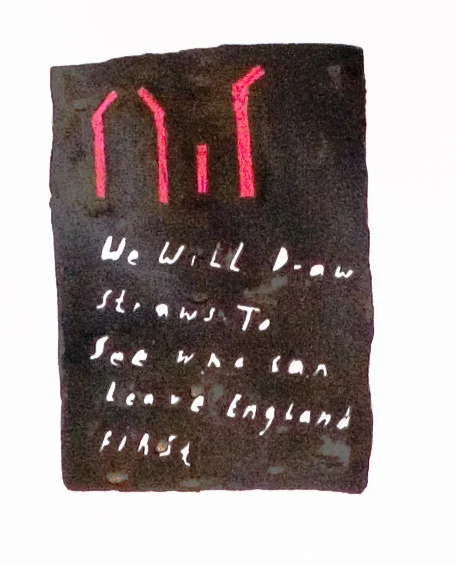 We Will Draw
straws To
See who can
Leave England
first